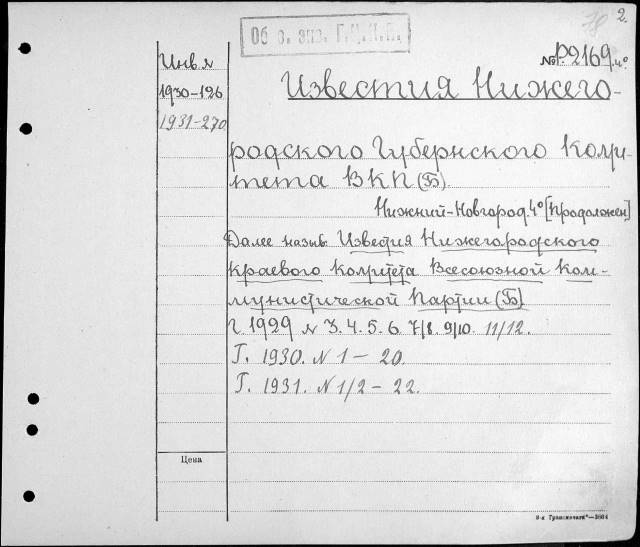 2.
Об о. энз. Г.Ц.К.П.
Инв. №
№ Р.2169.4°
Известия Нижего-
1930-126
1931-270
родского Губернского Коми-
тета ВКП(Б).
Нижний-Новгород. 4° [Продолжен]
Далее назыв. Известия Нижегородского
краевого комитета Всесоюзной Ком-
мунистической Партии (Б)
Г. 1929 N 3. 4. 5. 6. 7/8. 9/10. 11/12.
Г. 1930. N 1 – 20.
Г. 1931. N 1/2 – 22.
Цена